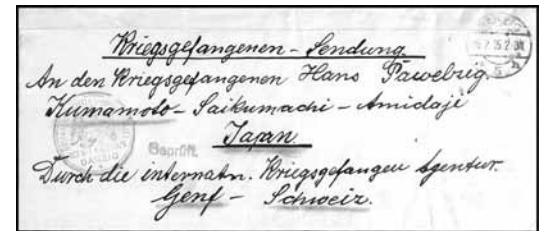 Kriegsgefangenen - Sendung.
An den Kriegsgefangenen Hans Pawelzig
Kumamoto - Saikumachi - Amidaji
Japan
Geprüft.
Durch die internatn. Kriegsgefangen Agentur.
Genf - Schweiz.